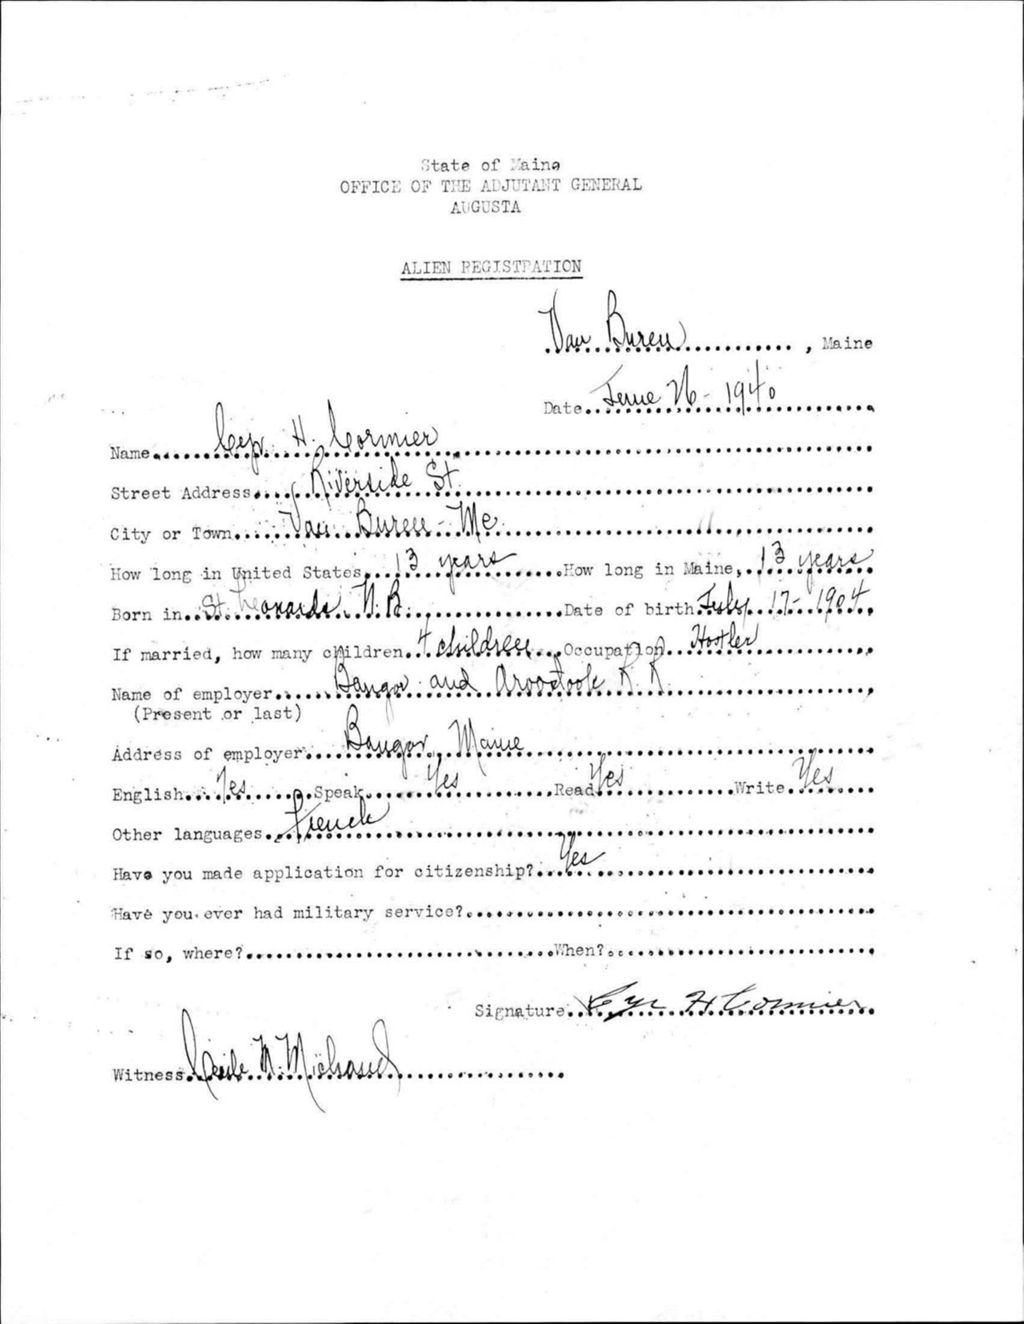 State of Maine
OFFICE OF THE ADJUTANT GENERAL
AUGUSTA
ALIEN REGISTRATION
Van Buren, Maine
Date June 26 - 1940
Name Cyr H. Cormier
Street Address Riverside St.
City or Town Van Buren - Me.
How long in United States 13 years How long in Maine, 13 years
Born in St. Leonards, N.B. Date of birth July 17 - 1904
If married, how many children 4 children Occupation Hostler
Name of employer Bangor and Aroostook R.R.
(Present or last)
Address of employer Bangor, Maine
English Yes Speak Yes Read Yes Write Yes
Other languages French
Have you made application for citizenship? Yes
Have you ever had military service?
If so, where? When?
Signature Cyr H Cormier
Witness Cecile N. Michaud